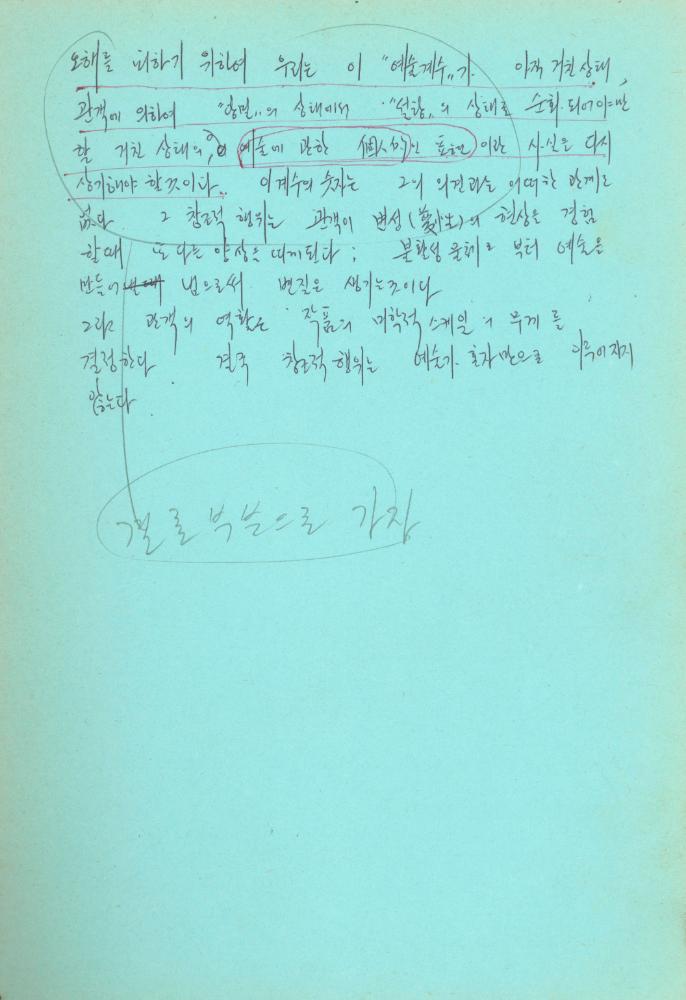 오해를 피하기 위하여 우리는 이 "예술계수"가 아직 거친상태,
관객에 의하여 "당밀"의 상태에서 "설탕"의 상태로 순화.되어야만
할 거친 상태의 예술에 관한 個人的인 표현 이란 사실을 다시
상기해야 할것이다. 이계수의 숫자는 그의 의견과는 어떠한 관계도
없다 그 창조적 행위는 관객이 변성(変性)의 현상을 경험
할때 또다른 양상을 띠게된다; 불활성 물체로 부터 예술을
만들어 냄으로써 변질은 생기는것이다
그리고 관객의 역할은 작품의 미학적 스케일의 무게를
결정한다 결국 창조적 행위는 예술가 혼자만으로 이루어지지
않는다
결론 부분으로 가짐